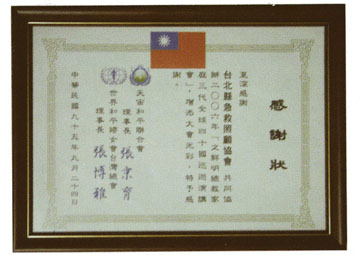 感謝狀
至深感謝
台北縣急救照顧協會 共同協
辦二〇〇六年「文鮮明總裁家
庭三代全球四十國巡迴演講
會」，增光大會光彩，特予感
謝。
天宙和平聯合會
理事長 張京育
世界和平婦女會台灣總會
理事長 張博雅
中華民國九十五年九月二十四日